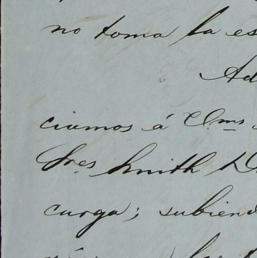 no toma la es
Ad
ciamos á Vms
Sres Smith D
carga; subiend